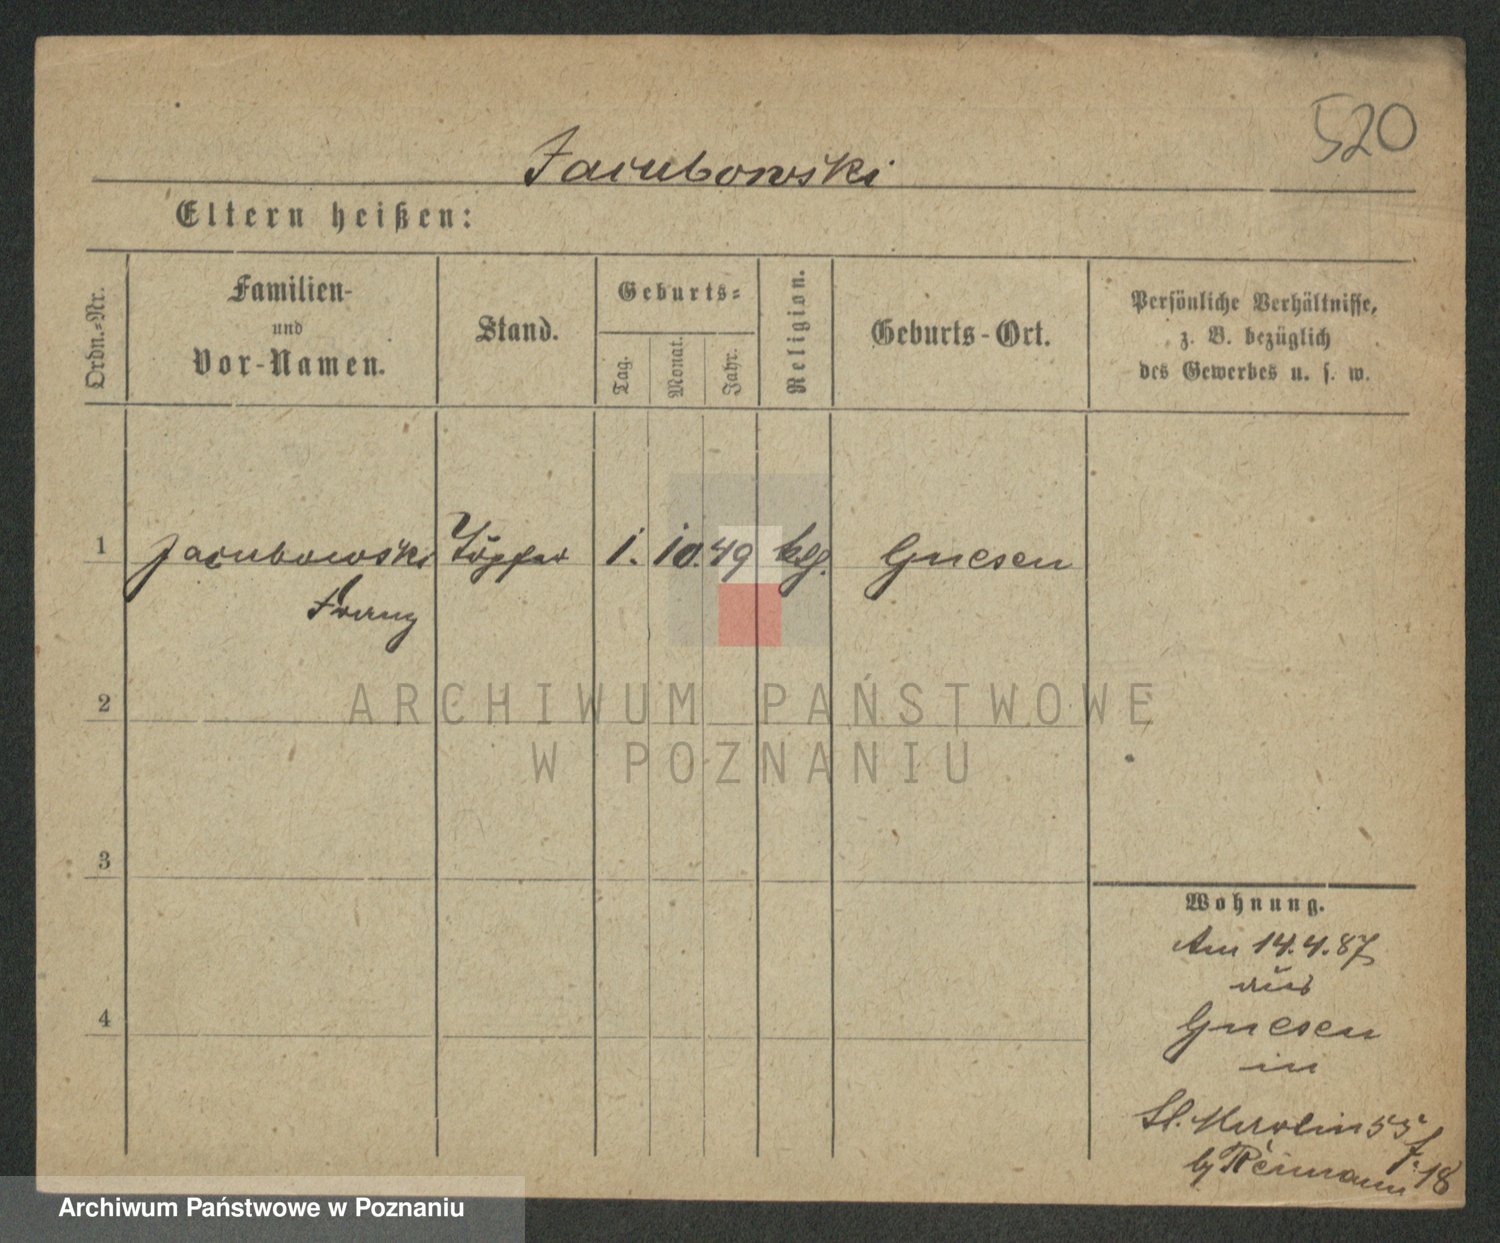 520
Jacubowski
Eltern heißen:
Ordn.-Nr.
Familien-
und
Vor-Namen.
Stand.
Geburts-
Tag.
Monat.
Jahr.
Religion.
Geburts-Ort.
Persönliche Verhältnisse,
z. B. bezüglich
des Gewerbes u. s. w.
1 Jacubowski Töpfer 1. 10. 49 klg. Gnesen
Franz
2
3
4
Wohnung.
Am 14.4.87
aus
Gnesen
in
St. Martin 55
by Reimann f. 18
ARCHIWUM PAŃSTWOWE
W POZNANIU
Archiwum Państwowe w Poznaniu